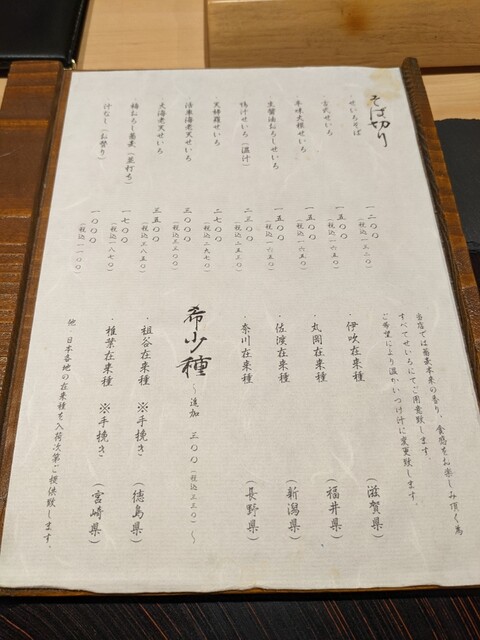 そば切り
・せいろそば 一二〇〇(税込一三二〇)
・古式せいろ 一五〇〇(税込一六五〇)
・辛味大根せいろ 一五〇〇(税込一六五〇)
・生醤油おろしせいろ 一五〇〇(税込一六五〇)
・鴨汁せいろ(温汁) 二三〇〇(税込二五三〇)
・天麩羅せいろ 二七〇〇(税込二九七〇)
・活車海老天せいろ 三〇〇〇(税込三三〇〇)
・大海老天せいろ 三五〇〇(税込三八五〇)
・鶴おろし蕎麦(並打ち) 一七〇〇(税込一八七〇)
・汁なし(お替り) 一〇〇〇(税込一一〇〇)
当店では蕎麦本来の香り、食感をお楽しみ頂く為
すべてせいろにてご用意致します。
ご希望により温かいつけ汁に変更致します。
・伊吹在来種 (滋賀県)
・丸岡在来種 (福井県)
・佐渡在来種 (新潟県)
・奈川在来種 (長野県)
希少種 ~追加 三〇〇(税込三三〇)~
・祖谷在来種 ※手挽き (徳島県)
・椎葉在来種 ※手挽き (宮崎県)
他 日本各地の在来種を入荷次第ご提供致します。